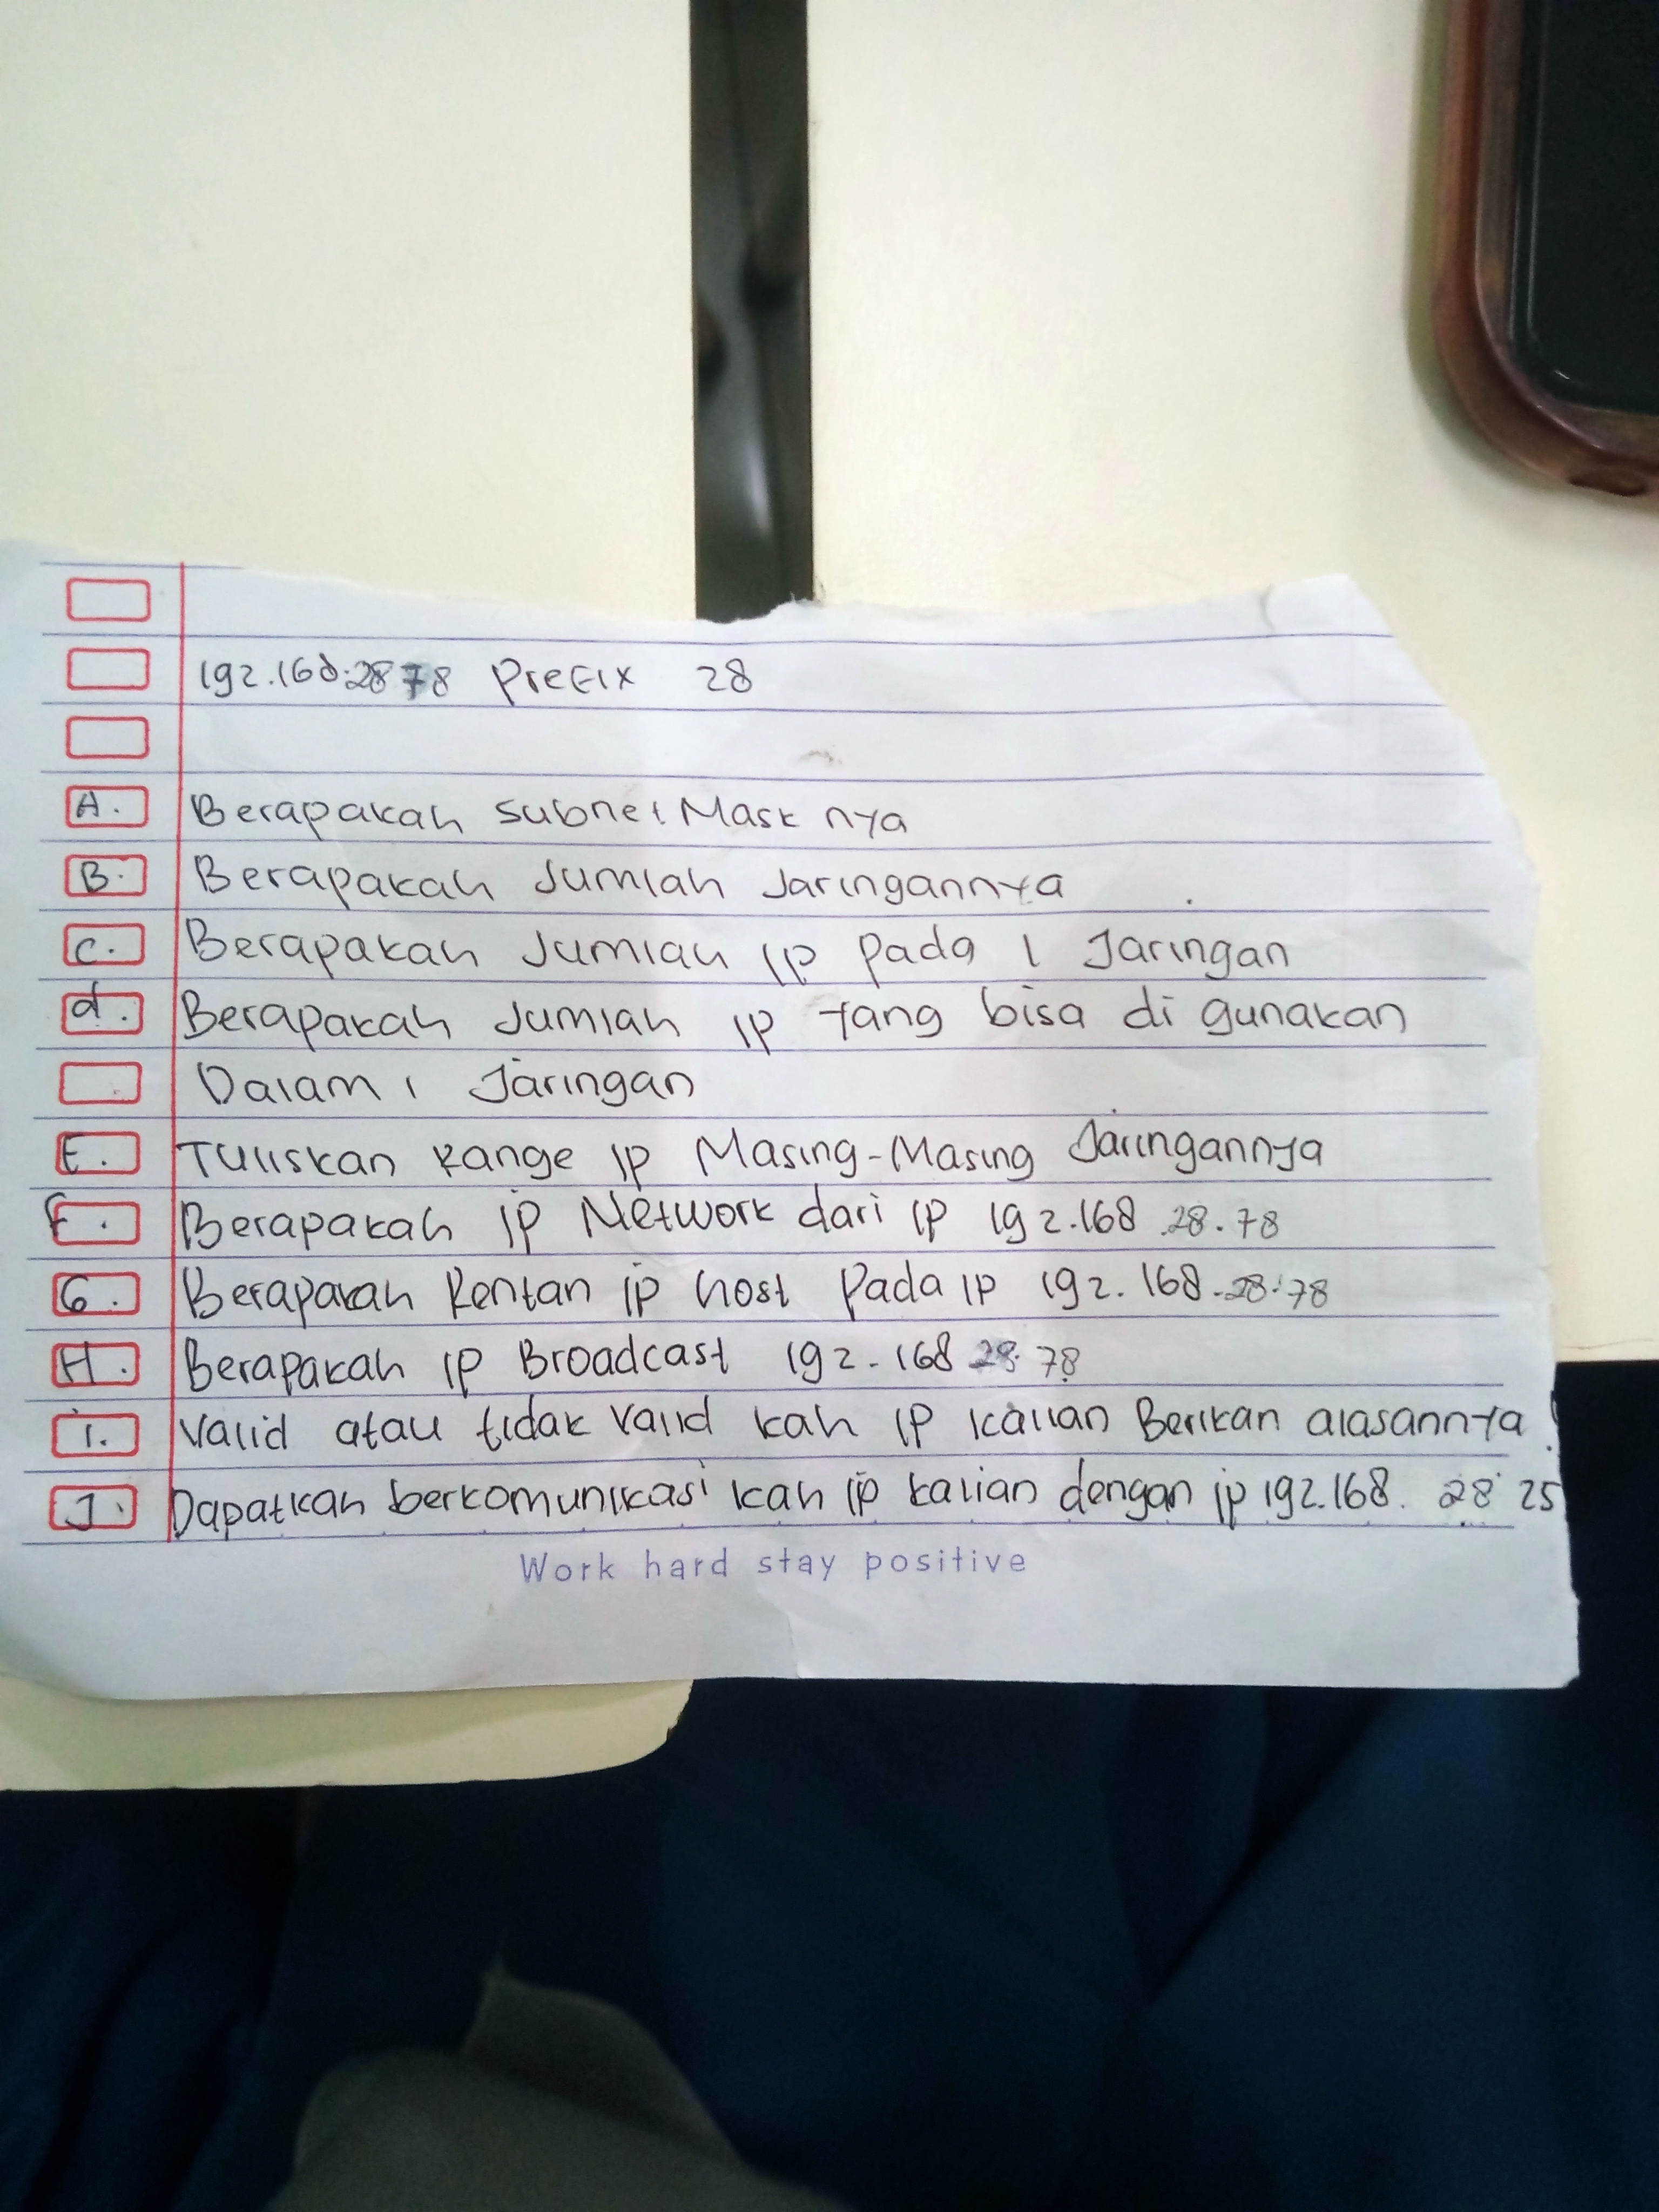 192.168.28 78 Prefix 28
A. Berapakah subnet Mask nya
B. Berapakah Jumlah Jaringannya
C. Berapakah Jumlah IP Pada 1 Jaringan
d. Berapakah Jumlah IP yang bisa di gunakan
Dalam 1 Jaringan
E. Tuliskan Range IP Masing-Masing Jaringannya
F. Berapakah IP Network dari IP 192.168 .28.78
G. Berapakah Rentan IP host Pada IP 192.168.28.78
H. Berapakah IP Broadcast 192.168 28.78
i. Valid atau tidak valid kah IP kalian Berikan alasannya!
J. Dapatkah berkomunikasi kah IP kalian dengan ip 192.168. 28 25
Work hard stay positive